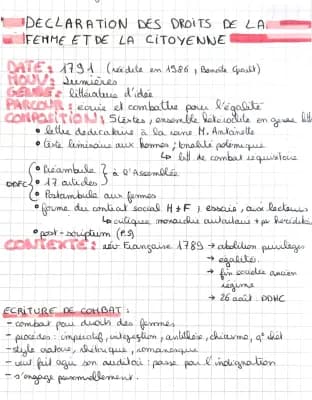 DECLARATION DES DROITS DE LA
FEMME ET DE LA CITOYENNE
DATE : 1791 (réédité en 1986, Benoite Groult)
MOUV : Lumières
GENRE : littérature d'idée
PARCOUR : écrire et combattre pour l'égalité
COMPOSITION : 5 textes, ensemble hétéroclite en genre litt
• lettre dédicatoire à la reine M. Antoinette
• texte liminaire aux hommes ; tonalité polémique
↳ litt de combat réquisitoire
DDFC
• Préambule
• 17 articles
à l'Assemblée
• Postambule aux femmes
• forme du contrat social H + F, essaie, aux lecteurs
↳ critique monarchie autoritaire + pv héréditaire
• post-scriptum (P.S)
CONTEXTE : rév Française 1789 → abolition privilèges
→ égalités
→ fin société ancien
régime
→ 26 août DDHC
ECRITURE DE COMBAT :
- combat pour droits des femmes
- procédés : impératif, interjection, antithèse, chiasme, q° rhét
- style oratoire, rhétorique, romanesque
- veut fait agir son auditoire : passe par l'indignation
- s'engage personnellement.